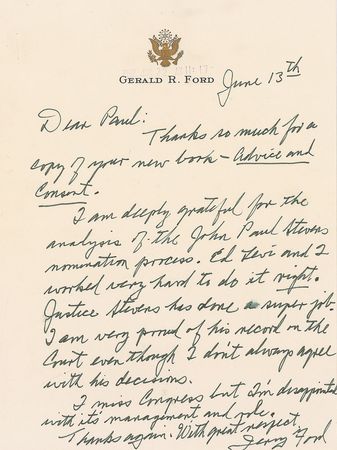 GERALD R. FORD
June 13th
Dear Paul:
Thanks so much for a
copy of your new book - Advice and
Consent.
I am deeply grateful for the
analysis of the John Paul Stevens
nomination process. Ed Levi and I
worked very hard to do it right.
Justice Stevens has done a super job.
I am very proud of his record on the
Court even though I don't always agree
with his decisions.
I miss Congress but I'm disappointed
with it's management and role.
Thanks again. With great respect
Jerry Ford